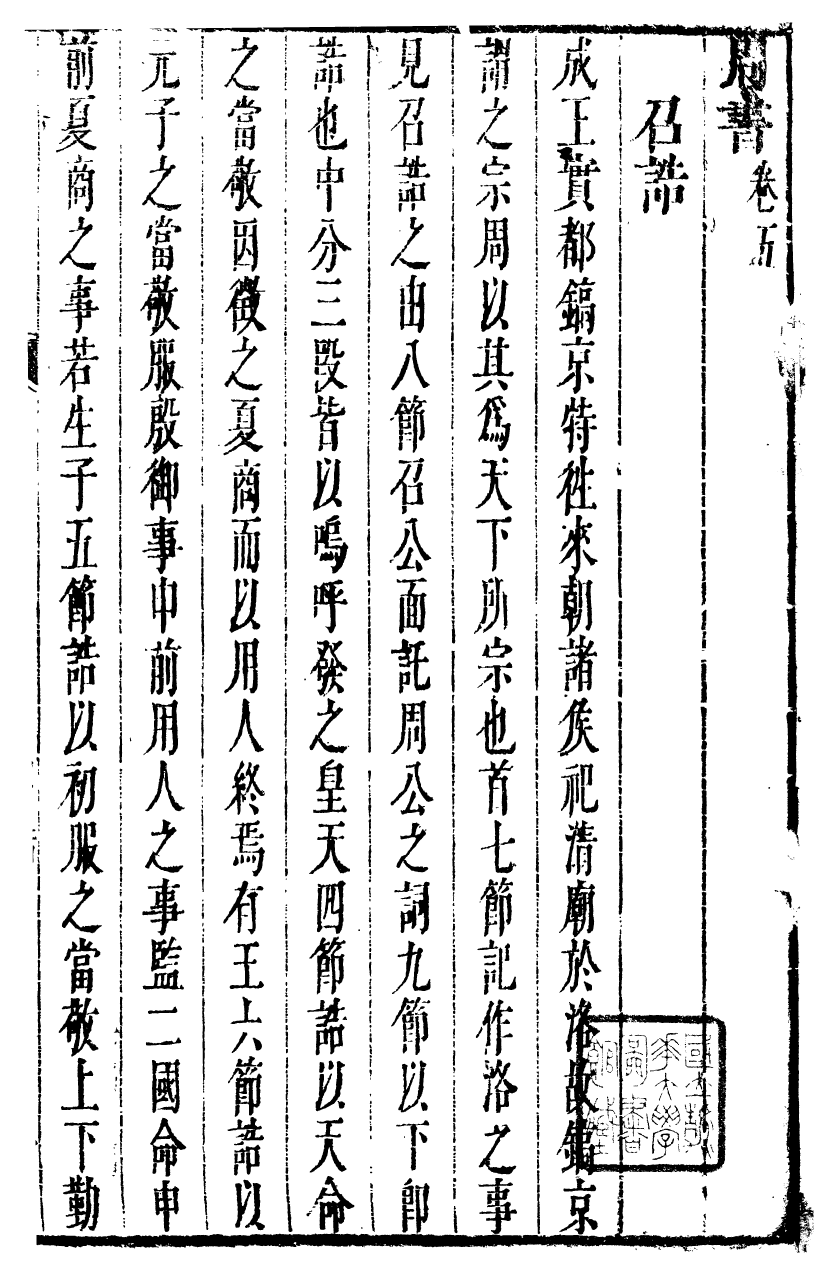 周書 卷五
召誥
成王實都鎬京特徃來朝諸侯祀清廟於洛故鎬京
謂之宗周以其爲天下所宗也首七節記作洛之事
見召誥之由八節召公面託周公之詞九節以下卽
誥也中分三段皆以嗚呼發之皇天四節誥以天命
之當敬因徵之夏商而以用人終焉有王六節誥以
元子之當敬服殷御事申前用人之事監二國命申
前夏商之事若生子五節誥以初服之當敬上下勤